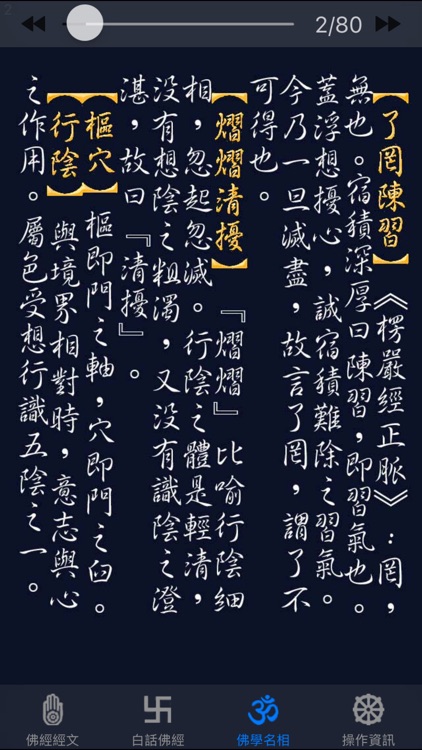 2
2/80
【了罔陳習】 《楞嚴經正脈》:罔,
無也。宿積深厚曰陳習,即習氣也。
蓋浮想擾心,誠宿積難除之習氣。
今乃一旦滅盡,故言了罔,謂了不
可得也。
【熠熠清擾】 『熠熠』比喻行陰細
相,忽起忽滅。行陰之體是輕清,
没有想陰之粗濁,又没有識陰之澄
湛,故曰『清擾』。
【樞穴】 樞即門之軸,穴即門之臼。
【行陰】 與境界相對時,意志與心
之作用。屬色受想行識五陰之一。
佛經經文 白話佛經 佛學名相 操作資訊